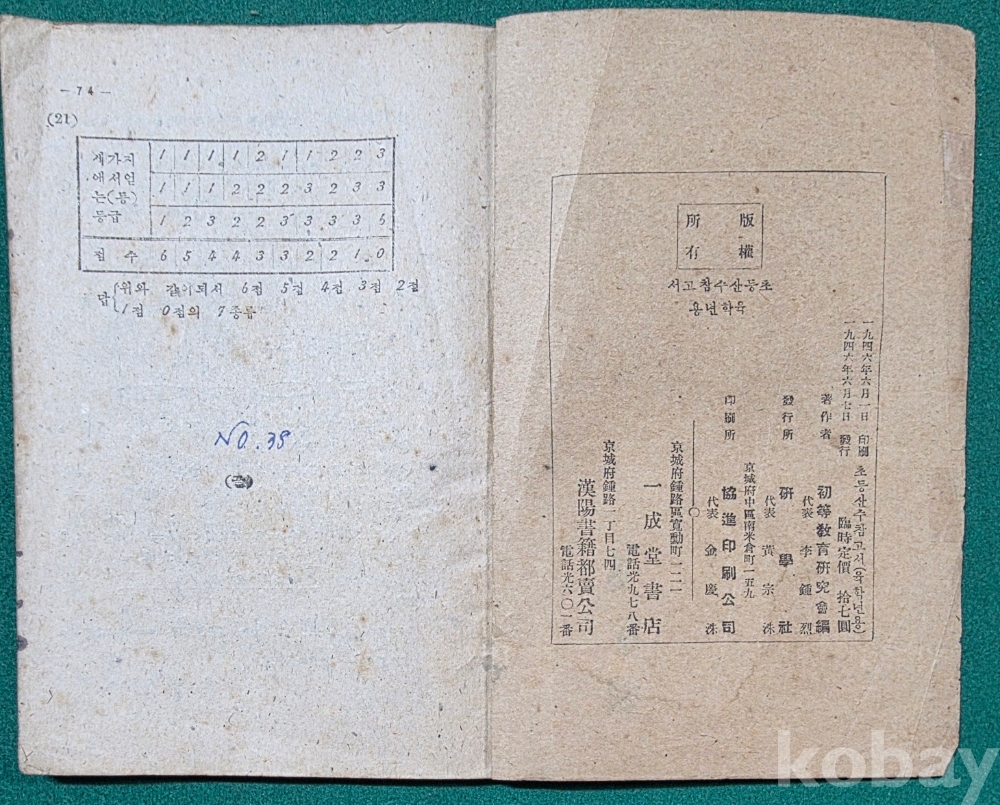 — 74 —
(21)
세가지 1 1 1 1 2 1 1 2 2 3
애서얻 1 1 1 2 2 2 3 2 3 3
는(등) 등급 1 2 3 2 2 3 3 3 3 3
점수 6 5 4 4 3 3 2 2 1 0
답 위와 같이되서 6점 5점 4점 3점 2점
1점 0점의 7종류
NO. 38
(끝)
版權
所有
초등산수참고서
육학년용
一九四六年六月一日 印刷
一九四六年六月七日 發行
초등산수참고서(육학년용)
臨時定價 拾七圓
著作者 初等敎育硏究會編
代表 李鍾烈
發行所 硏學社
代表 黃宗洙
京城府中區南米倉町一五九
印刷所 協進印刷公司
代表 金慶洙
京城府鍾路區寬勳町一一一
一成堂書店
電話光九七八番
京城府鍾路二丁目七四
漢陽書籍都賣公司
電話光六〇一番
kobay